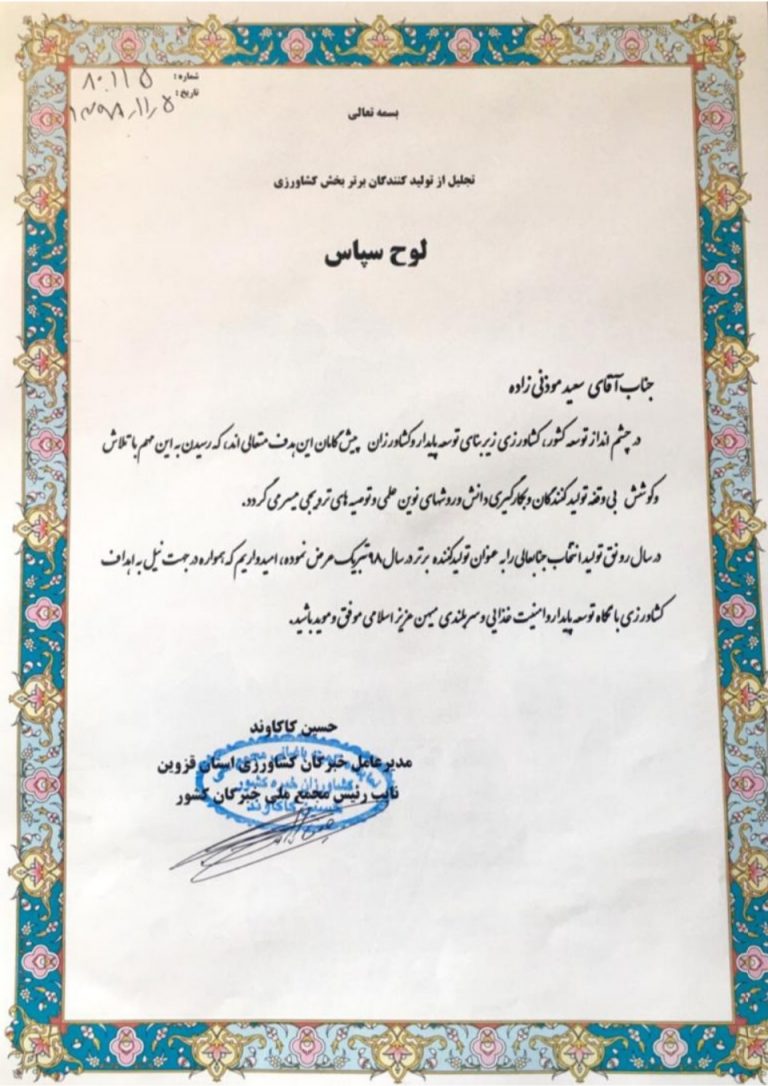 شماره: ۸۰۱۱۵
تاریخ: ۱۳۹۸/۱۱/۵
بسمه تعالی
تجلیل از تولید کنندگان برتر بخش کشاورزی
لوح سپاس
جناب آقای سعید موذنی زاده
در چشم انداز توسعه کشور، کشاورزی زیربنای توسعه پایدار و کشاورزان پیش گامان این هدف متعالی اند، که رسیدن به این مهم با تلاش
و کوشش بی وقفه تولید کنندگان و بکارگیری دانش و روشهای نوین علمی و توصیه های ترویجی میسر می گردد.
در سال رونق تولید انتخاب جنابعالی را به عنوان تولیدکننده برتر در سال ۹۸ تبریک عرض نموده، امیدواریم که همواره در جهت نیل به اهداف
کشاورزی با نگاه توسعه پایدار و امنیت غذایی و سربلندی میهن عزیز اسلامی موفق و موید باشید.
حسین کاکاوند
مدیرعامل خبرگان کشاورزی استان قزوین
نایب رئیس مجمع ملی خبرگان کشور
کشاورزان خبره کشور
حسین کاکاوند